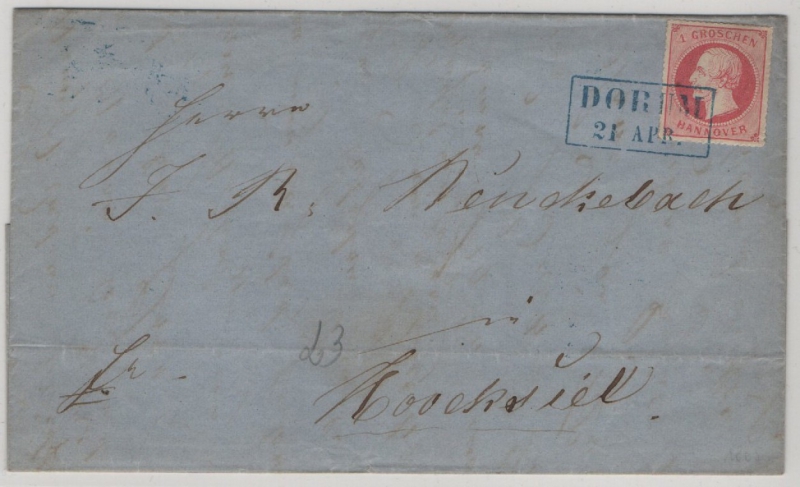 1 GROSCHEN
HANNOVER
DORUM
21 APR.
Herrn
J. R. Wenckebach
in
Hoocksiel.
fr.
23